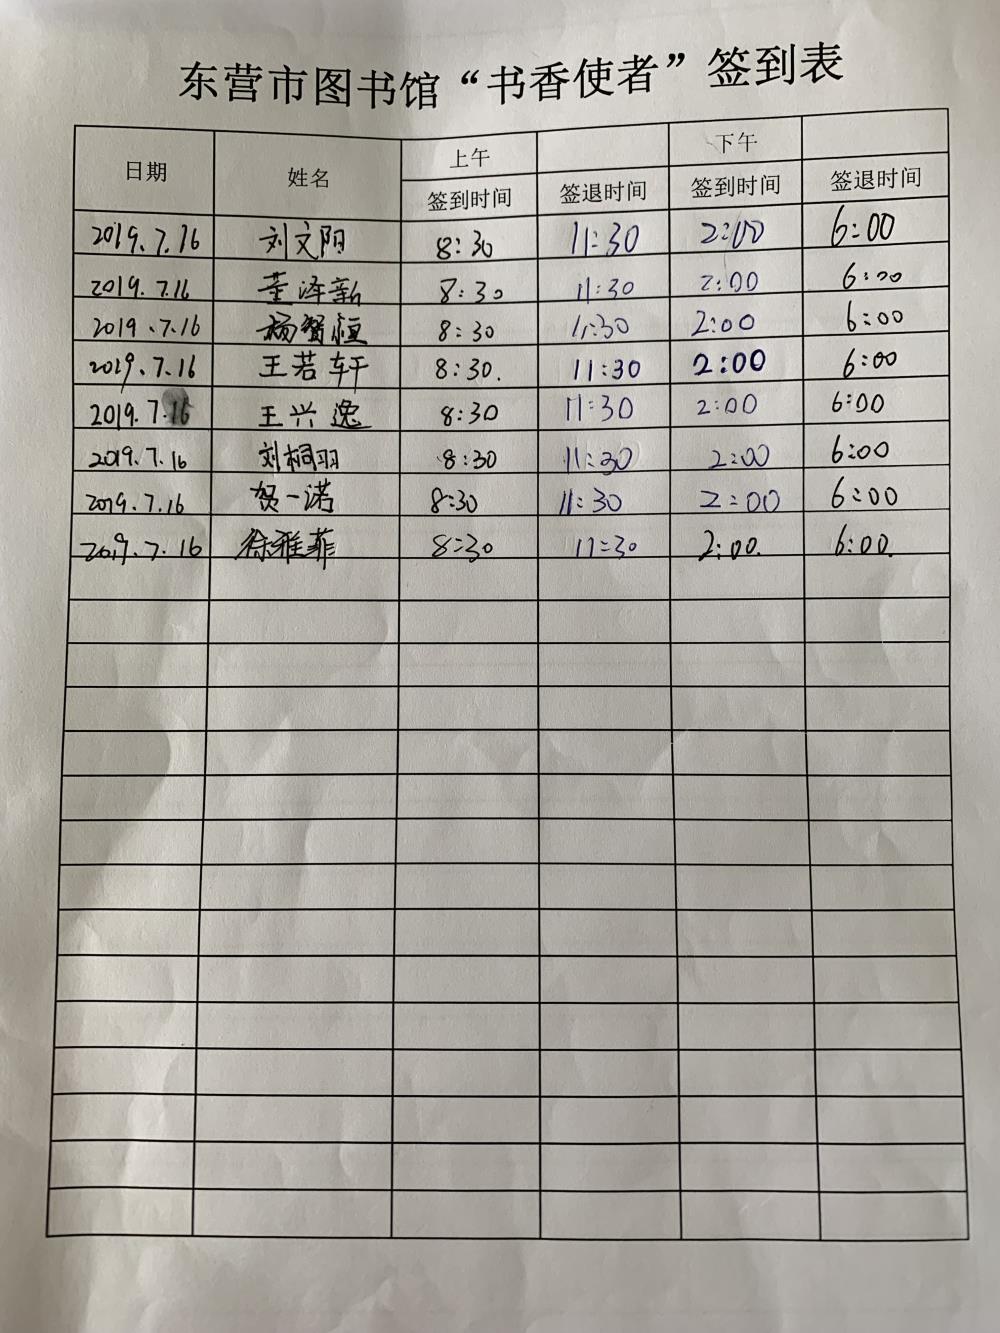 东营市图书馆“书香使者”签到表
日期 姓名 上午 下午
签到时间 签退时间 签到时间 签退时间
2019.7.16 刘文阳 8:30 11:30 2:00 6:00
2019.7.16 董泽新 8:30 11:30 2:00 6:00
2019.7.16 杨贺桓 8:30 11:30 2:00 6:00
2019.7.16 王若轩 8:30. 11:30 2:00 6:00
2019.7.16 王兴逸 8:30 11:30 2:00 6:00
2019.7.16 刘桐羽 8:30 11:30 2:00 6:00
2019.7.16 贺一诺 8:30 11:30 2:00 6:00
2019.7.16 徐雅菲 8:30 11:30 2:00. 6:00.